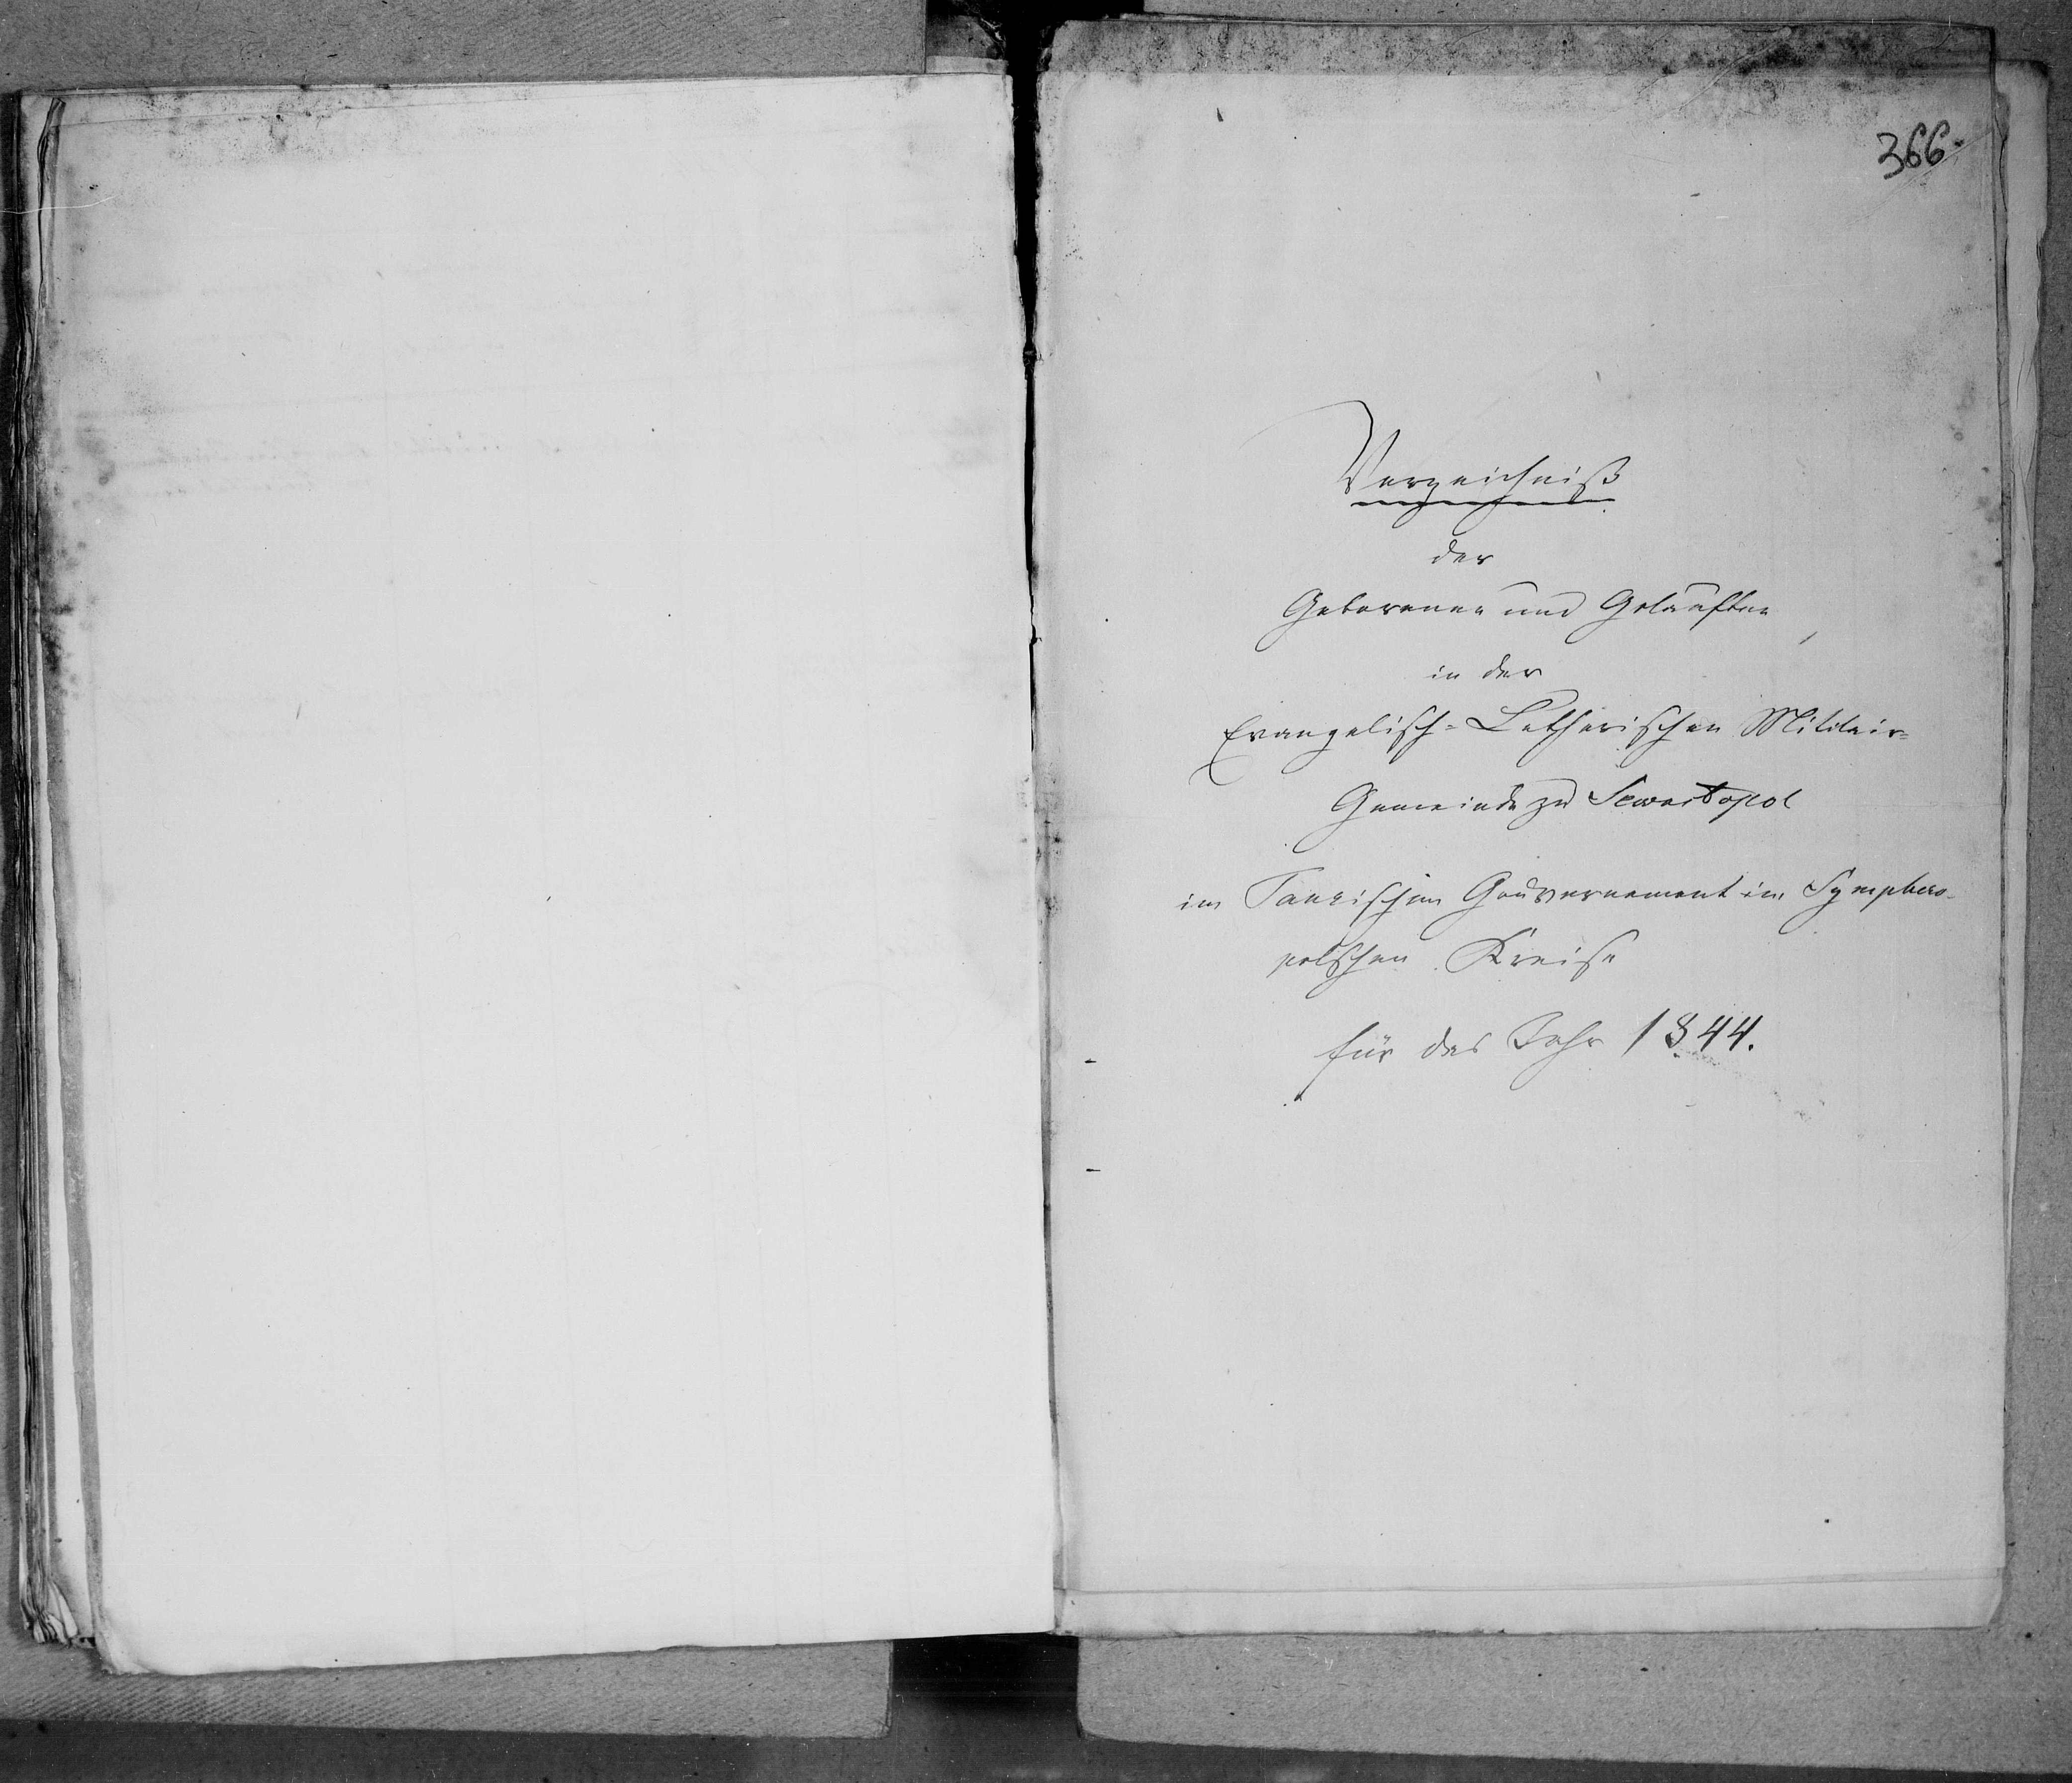 366.
Verzeichniß
der
Geborenen und Getauften
in der
Evangelisch-Lutherischen Militair-
Gemeinde zu Sewastopol
im Taurischen Gouvernement im Symphero-
polschen Kreise
für das Jahr 1844.